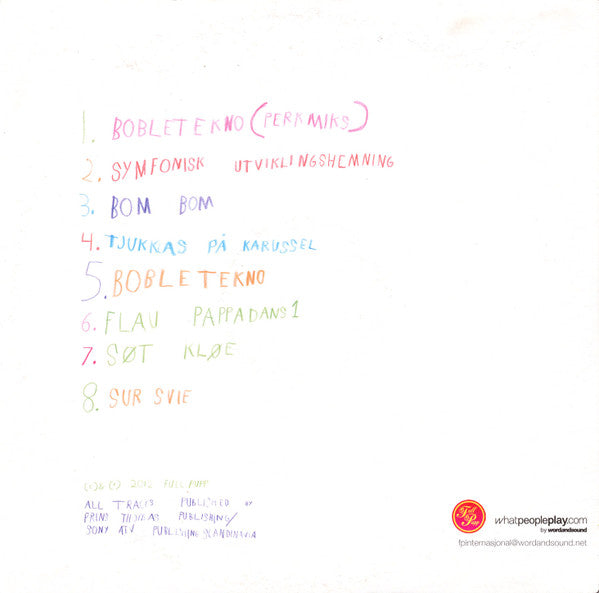 1. BOBLETEKNO (PERKMIKS)
2. SYMFONISK UTVIKLINGSHEMNING
3. BOM BOM
4. TJUKKAS PÅ KARUSSEL
5. BOBLETEKNO
6. FLAU PAPPADANS 1
7. SØT KLØE
8. SUR SVIE
(C)& (P) 2012 FULL PUPP
ALL TRACKS PUBLISHED BY
PRINS THOMAS PUBLISHING/
SONY ATV PUBLISHING SCANDINAVIA
Full Pupp
whatpeopleplay.com
by wordandsound
fpinternasjonal@wordandsound.net